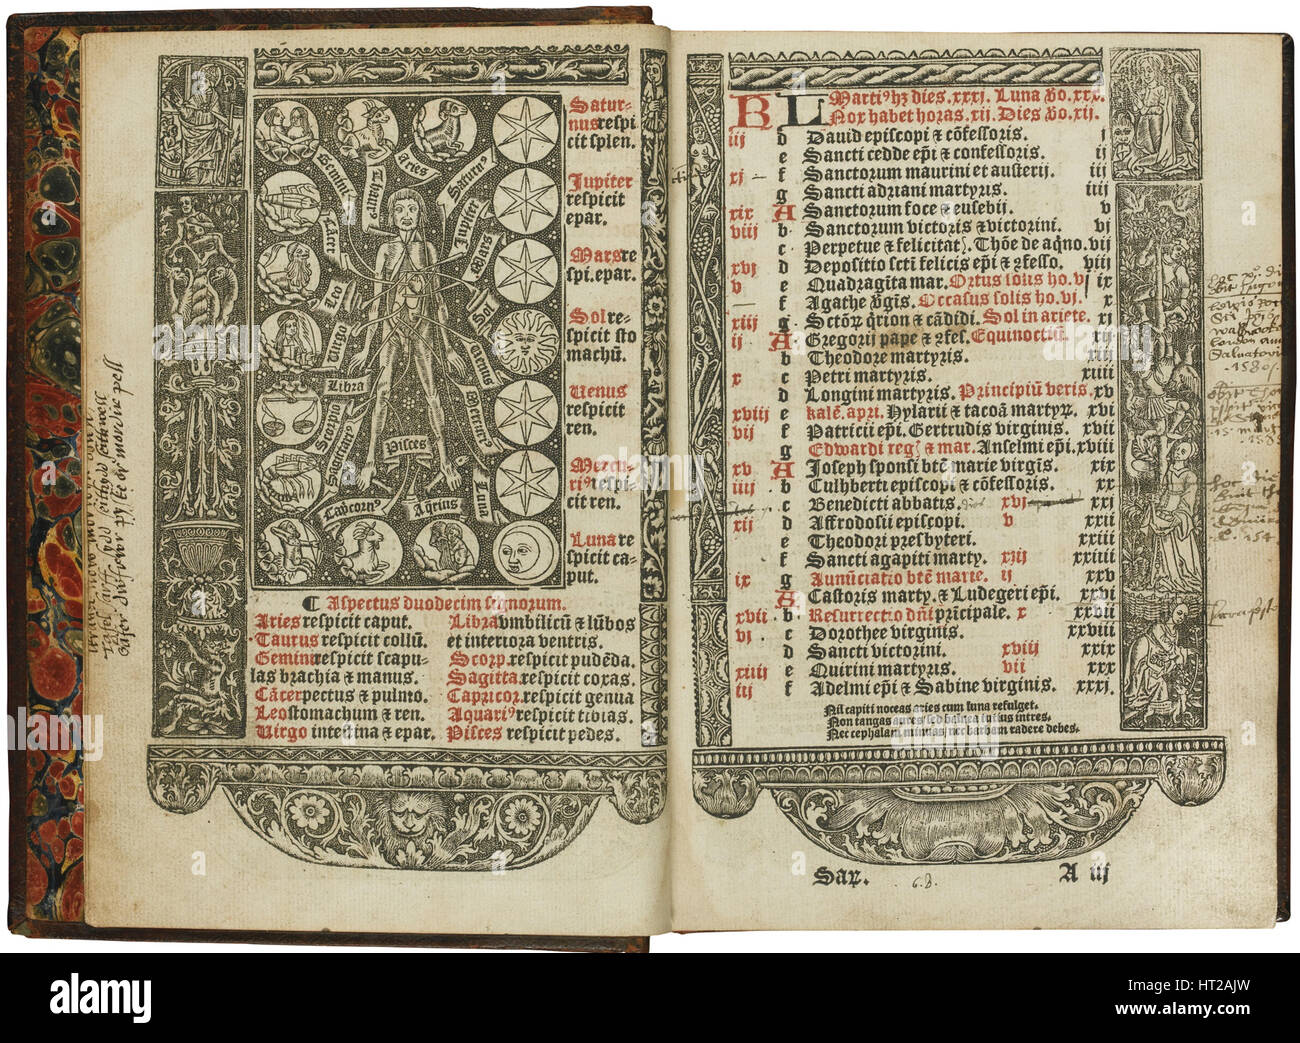 Satur-
nus respi
cit splen.
Jupiter
respicit
epar.
Mars re
spi. epar.
Sol re-
spicit sto
machū.
Uenus
respicit
ren.
Mercu-
riꝰ respi-
cit ren.
Luna re
spicit ca-
put.
Gemini
Thaurꝰ
Aries
Saturnꝰ
Cācer
Jupiter
Mars
Leo
Sol
Uirgo
Uenus
Libra
Mercuriꝰ
Scorpio
Sagittariꝰ
Pisces
Capcornꝰ
Aq̄rius
Luna
¶ Aspectus duodecim signorum.
Aries respicit caput.
Taurus respicit collū.
Gemini respicit scapu-
las brachia & manus.
Cācer pectus & pulmo.
Leo stomachum & ren.
Uirgo intestina & epar.
Libra vmbilicū & lūbos
et interiora ventris.
Scorp. respicit pudēda.
Sagitta. respicit coxas.
Capricor. respicit genua
Aquariꝰ respicit tibias.
Pisces respicit pedes.
KL Martiꝰ hȝ dies .xxxj. Luna v̄o .xxx.
Nox habet horas .xij. Dies v̄o .xij.
iij d Dauid episcopi & cōfessoris. j
e Sancti cedde ep̄i & confessoris. ij
xj f Sanctorum maurini et austerij. iij
g Sancti adriani martyris. iiij
xix A Sanctorum foce & eusebij. v
viij b Sanctorum victoris & victorini. vj
c Perpetue & felicitat. Thōe de aq̄no. vij
xvj d Depositio scti felicis ep̄i & ꝯfesso. viij
v e Quadragīta mar. Ortus solis ho. vj ix
f Agathe v̄gīs. Occasus solis ho. vj. x
xiij g Sctōꝝ q̄rion & cādidi. Sol in ariete. xj
ij A Gregorij pape & ꝯfes. Equinoctiū. xij
b Theodore martyris. xiij
x c Petri martyris. xiiii
d Longini martyris. Principiū veris. xv
xviij e kalē. apri. Hylarii & tacoā martyꝝ. xvi
vij f Patricii ep̄i. Gertrudis virginis. xvij
g Edwardi reg. & mar. Anselmi ep̄i. xviij
xv A Joseph sponsi btē marie virgis. xix
iiij b Cuthberti episcopi & cōfessoris. xx
c Benedicti abbatis. xvj xxj
xij d Affrodosii episcopi. v xxii
e Theodori presbyteri. xxiii
f Sancti agapiti marty. xiij xxiiii
ix g Annūciatio btē marie. ij xxv
A Castoris marty. & Ludegeri ep̄i. xxvi
xvii b Resurrectio dn̄i prīcipale. x xxvii
vj c Dorothee virginis. xxviii
d Sancti victorini. xviij xxix
xiiij e Quirini martyris. vii xxx
iij f Adelmi ep̄i & Sabine virginis. xxxj.
Nil capiti noceas aries cum luna refulget.
Non tangas aures sed balnea tutius intres.
Nec cephalam minuas, nec barbam radere debes.
Saꝝ. 6.8. A iij
alamy
Image ID: HT2AJW
www.alamy.com